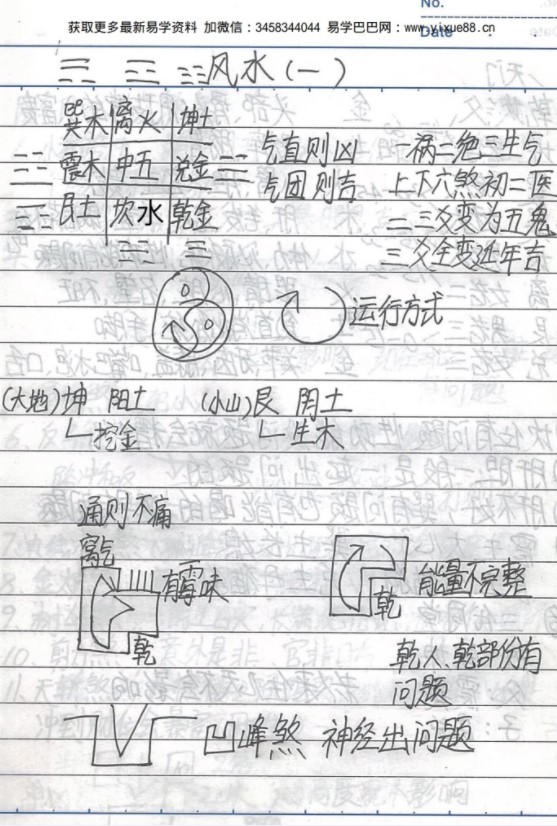 No.
Date
获取更多最新易学资料 加微信：3458344044 易学巴巴网：www.yixue88.cn
☴ ☲ ☷ 风水（一）
巽木 离火 坤土
震木 中五 兑金
艮土 坎水 乾金
气直则凶 一祸二绝三生气
气团则吉 上下六煞初二医
二三爻变为五鬼
三爻全变延年吉
运行方式
(大地)坤 阳土 (小山)艮 阴土
挖金 生木
通则不痛
离气
有霉味
乾
能量不完整
乾
乾人、乾部份有
问题
凹峰煞 神经出问题